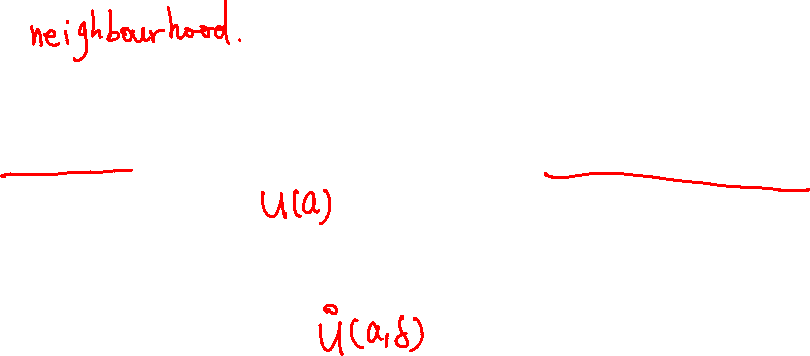 neighbourhood.
U(a)
Ů(a,δ)